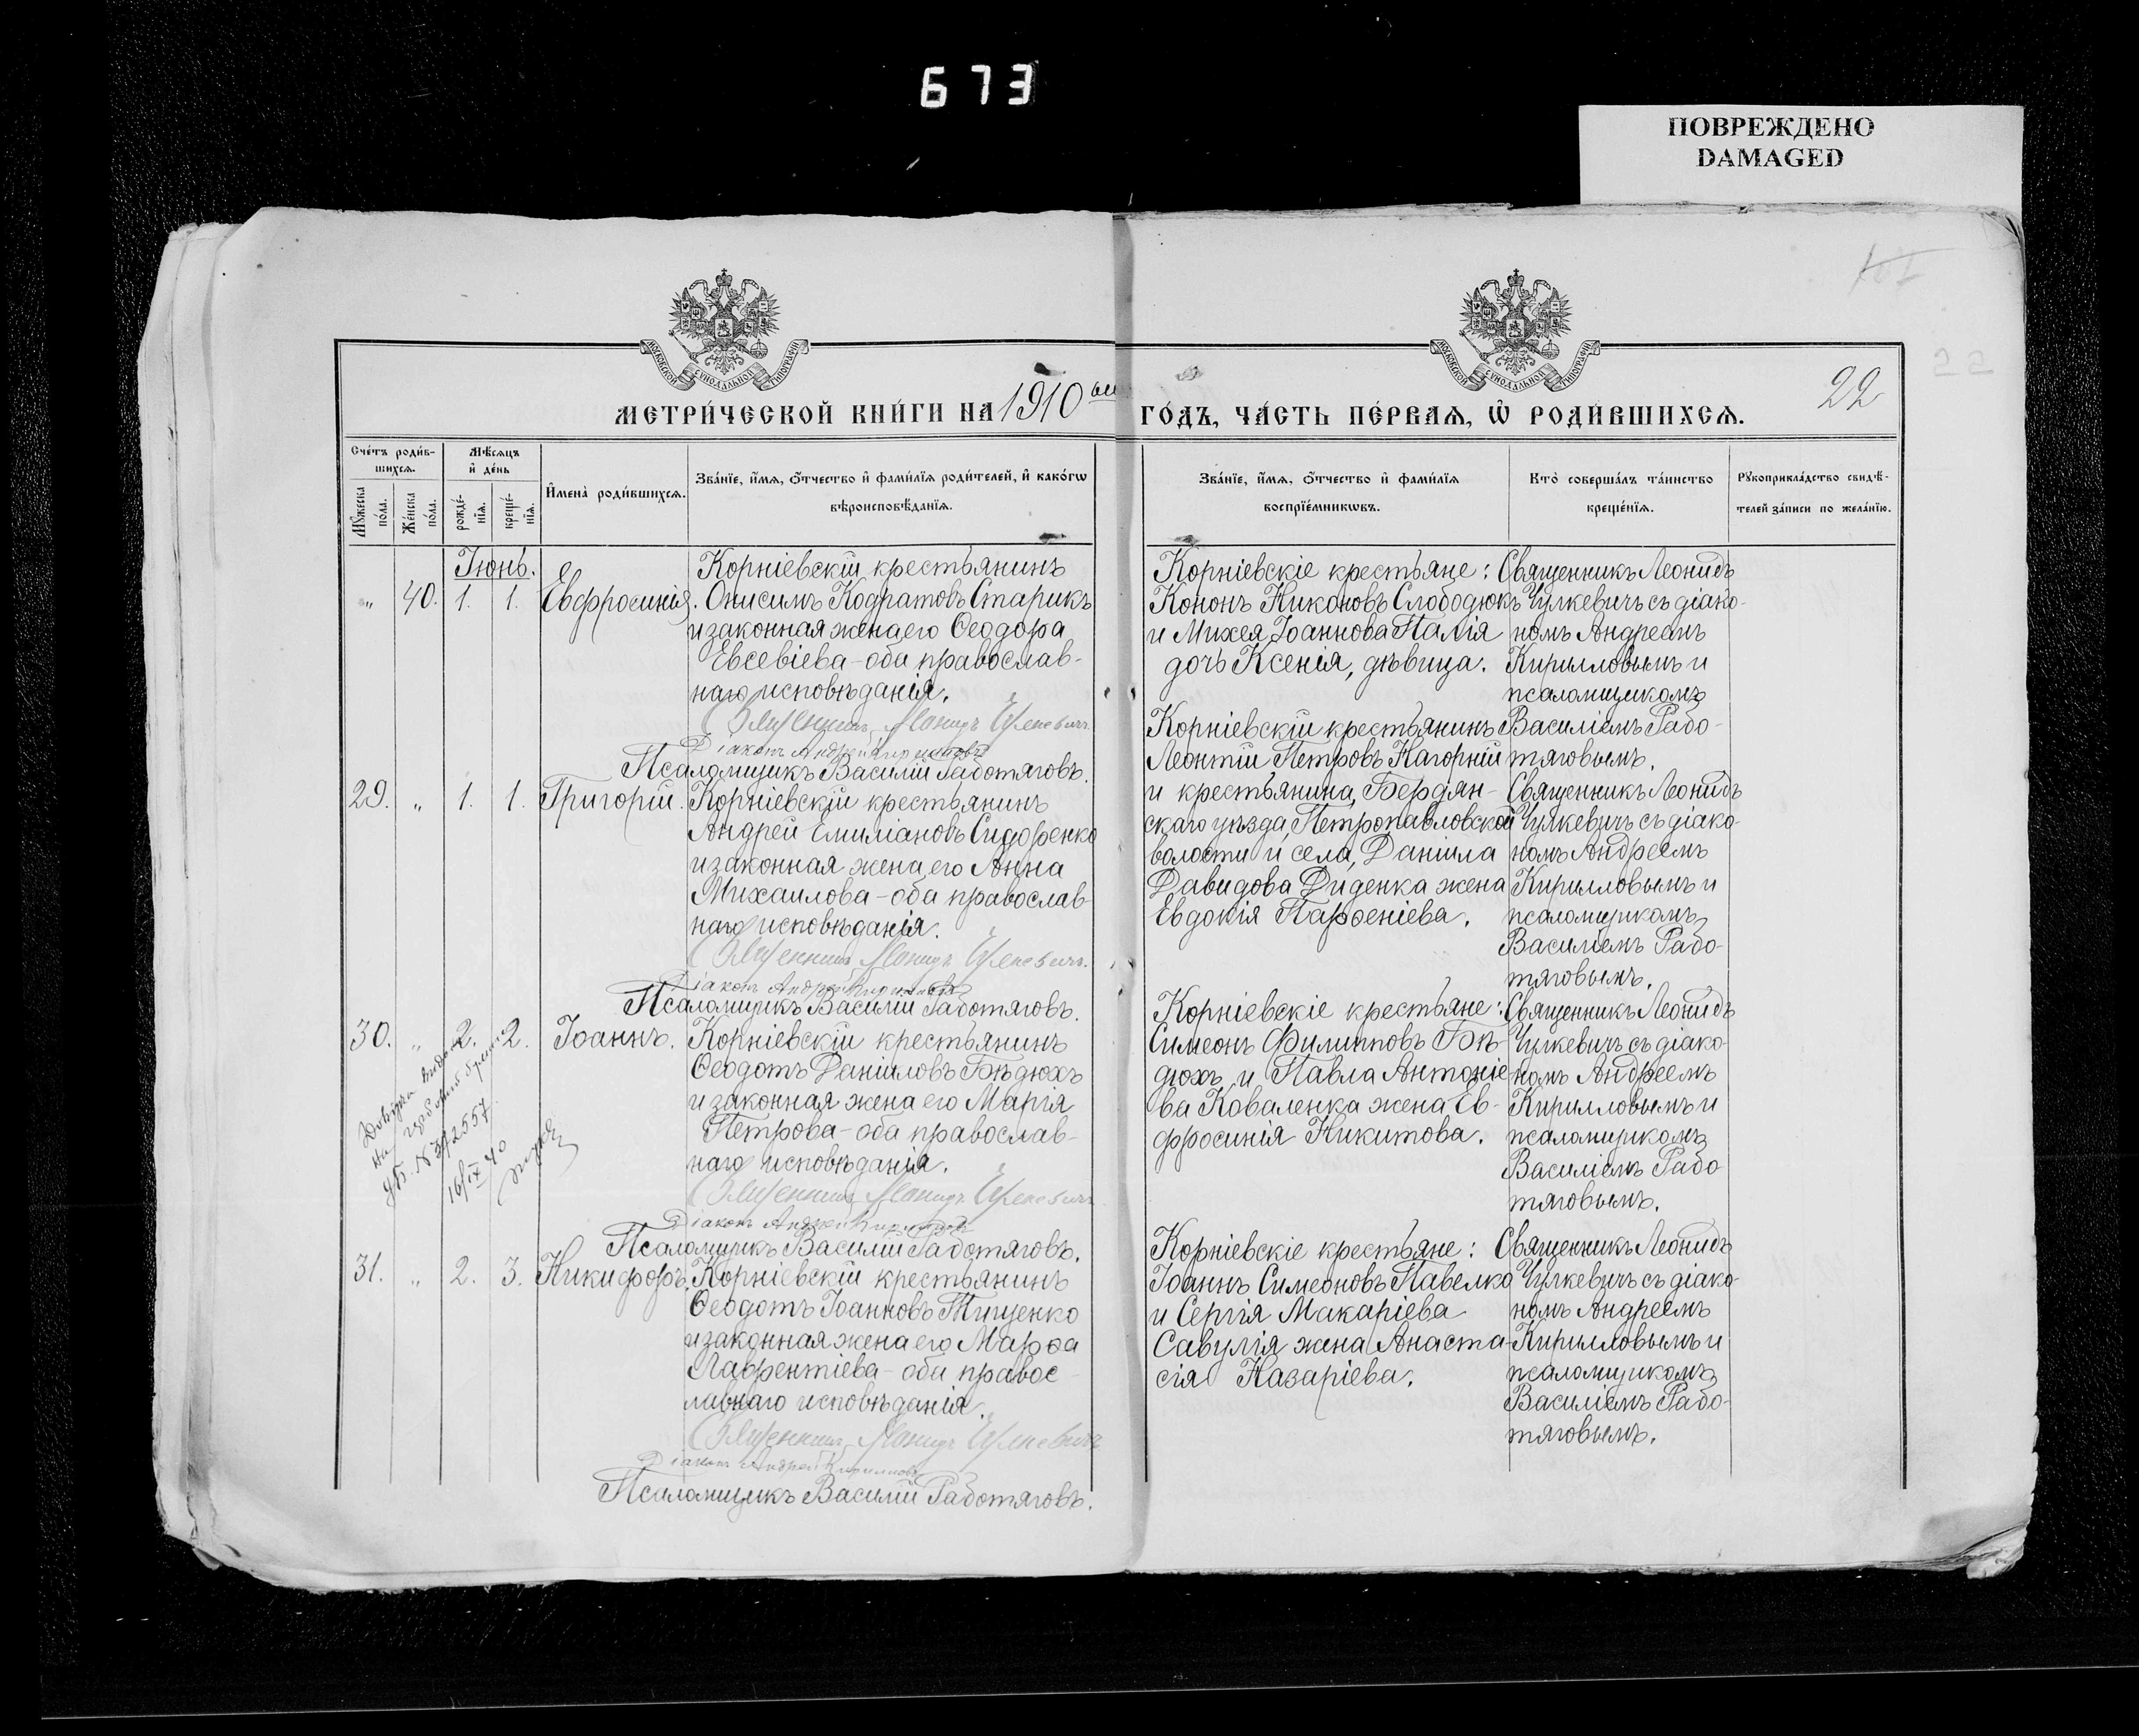 673
ПОВРЕЖДЕНО
DAMAGED
МОСКОВСКОЙ СУНОДАЛЬНОЙ ТИПОГРАФІИ
МОСКОВСКОЙ СУНОДАЛЬНОЙ ТИПОГРАФІИ
22
МЕТРИ́ЧЕСКОЙ КНИ́ГИ НА 1910ый ГО́ДЪ, ЧА́СТЬ ПЕ́РВАЯ, Ѡ҆ РОДИ́ВШИХСЯ.
Сче́тъ роди́в-
шихся.
Мѣ́сяцъ
и҆ де́нь
Мꙋ́жеска по́ла.
Же́нска по́ла.
рожде́-
нїя.
креще́-
нїя.
И҆мена̀ роди́вшихся.
Зва́нїе, и҆́мя, ѻ҆́тчество и҆ фами́лїя роди́телей, и҆ како́гѡ
вѣроисповѣ́данїя.
Зва́нїе, и҆́мя, ѻ҆́тчество и҆ фами́лїя
воспрїе́мникѡвъ.
Кто̀ соверша́лъ та́инство
креще́нїя.
Рꙋкоприкла́дство свидѣ́-
телей за́писи по жела́нїю.
Іюнь.
" 40. 1. 1. Евфросинія.
Корніевскій крестьянинъ
Онисимъ Кодратовъ Старикъ
и законная жена его Ѳеодора
Евсевіева - оба православ-
наго исповѣданія.
Священникъ Леонидъ Чулкевичъ
Діаконъ Андрей Кирилловъ
Псаломщикъ Василій Работяговъ.
Корніевскіе крестьяне:
Кононъ Никоновъ Слободюкъ
и Михея Іоаннова Палія
дочь Ксенія, дѣвица.
Священникъ Леонидъ
Чулкевичъ съ діако-
номъ Андреемъ
Кирилловымъ и
псаломщикомъ
Василіемъ Рабо-
тяговымъ.
29. " 1. 1. Григорій.
Корніевскій крестьянинъ
Андрей Емиліановъ Сидоренко
и законная жена его Анна
Михаилова - оба православ-
наго исповѣданія.
Священникъ Леонидъ Чулкевичъ.
Діаконъ Андрей Кирилловъ
Псаломщикъ Василій Работяговъ.
Корніевскій крестьянинъ
Леонтій Петровъ Нагорній
и крестьянина, Бердян-
скаго уѣзда, Петропавловской
волости и села, Даніила
Давидова Диденка жена
Евдокія Парѳеніева.
Священникъ Леонидъ
Чулкевичъ съ діако-
номъ Андреемъ
Кирилловымъ и
псаломщикомъ
Василіемъ Рабо-
тяговымъ.
30. " 2. 2. Іоаннъ.
№ 392557
16/IX 40
Корніевскій крестьянинъ
Ѳеодотъ Даніиловъ Бѣдюхъ
и законная жена его Марія
Петрова - оба православ-
наго исповѣданія.
Священникъ Леонидъ Чулкевичъ
Діаконъ Андрей Кирилловъ
Псаломщикъ Василій Работяговъ.
Корніевскіе крестьяне:
Симеонъ Филипповъ Бѣ-
дюхъ и Павла Антоніе-
ва Коваленка жена Ев-
фросинія Никитова.
Священникъ Леонидъ
Чулкевичъ съ діако-
номъ Андреемъ
Кирилловымъ и
псаломщикомъ
Василіемъ Рабо
тяговымъ.
31. " 2. 3. Никифоръ.
Корніевскій крестьянинъ
Ѳеодотъ Іоанновъ Тищенко
и законная жена его Марѳа
Лаврентіева - оба правос-
лавнаго исповѣданія.
Священникъ Леонидъ Чулкевичъ
Діаконъ Андрей Кирилловъ
Псаломщикъ Василій Работяговъ.
Корніевскіе крестьяне:
Іоаннъ Симеоновъ Павелко
и Сергія Макаріева
Савулія жена Анаста-
сія Назаріева.
Священникъ Леонидъ
Чулкевичъ съ діако-
номъ Андреемъ
Кирилловымъ и
псаломщикомъ
Василіемъ Рабо-
тяговымъ.